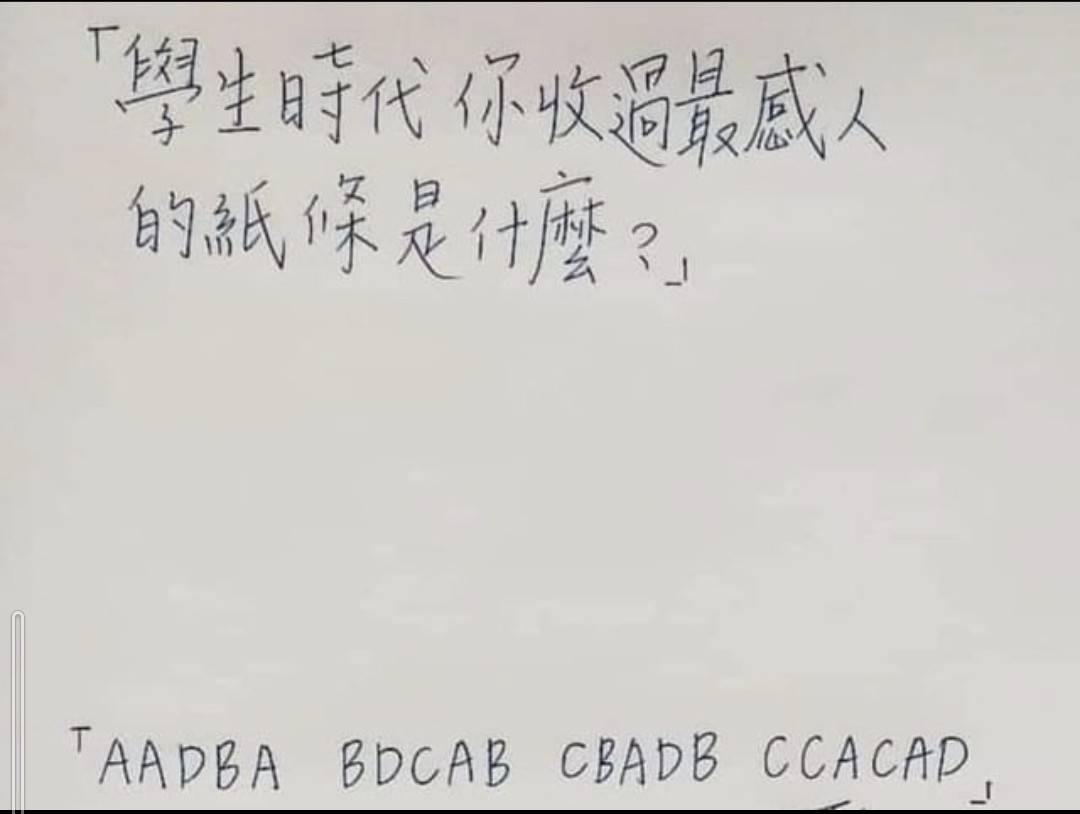 「學生時代你收過最感人
的紙條是什麼?」
「AADBA BDCAB CBADB CCACAD」